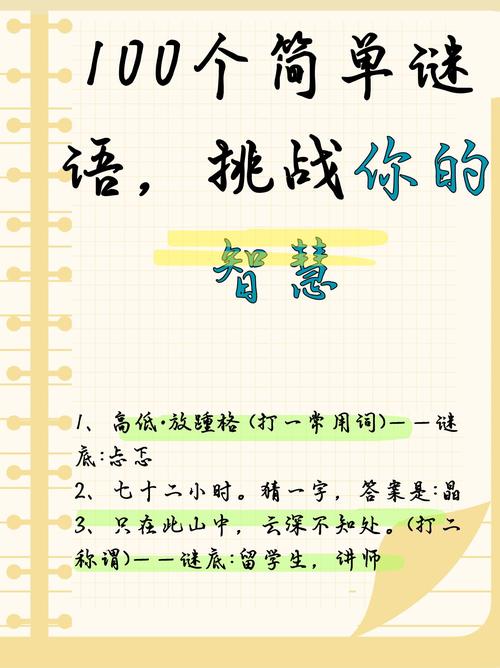 100个简单谜
语，挑战你的
智慧
1、高低·放踵格(打一常用词)——谜
底:忐忑
2、七十二小时。猜一字，答案是:晶
3、只在此山中，云深不知处。(打二
称谓)——谜底:留学生，讲师